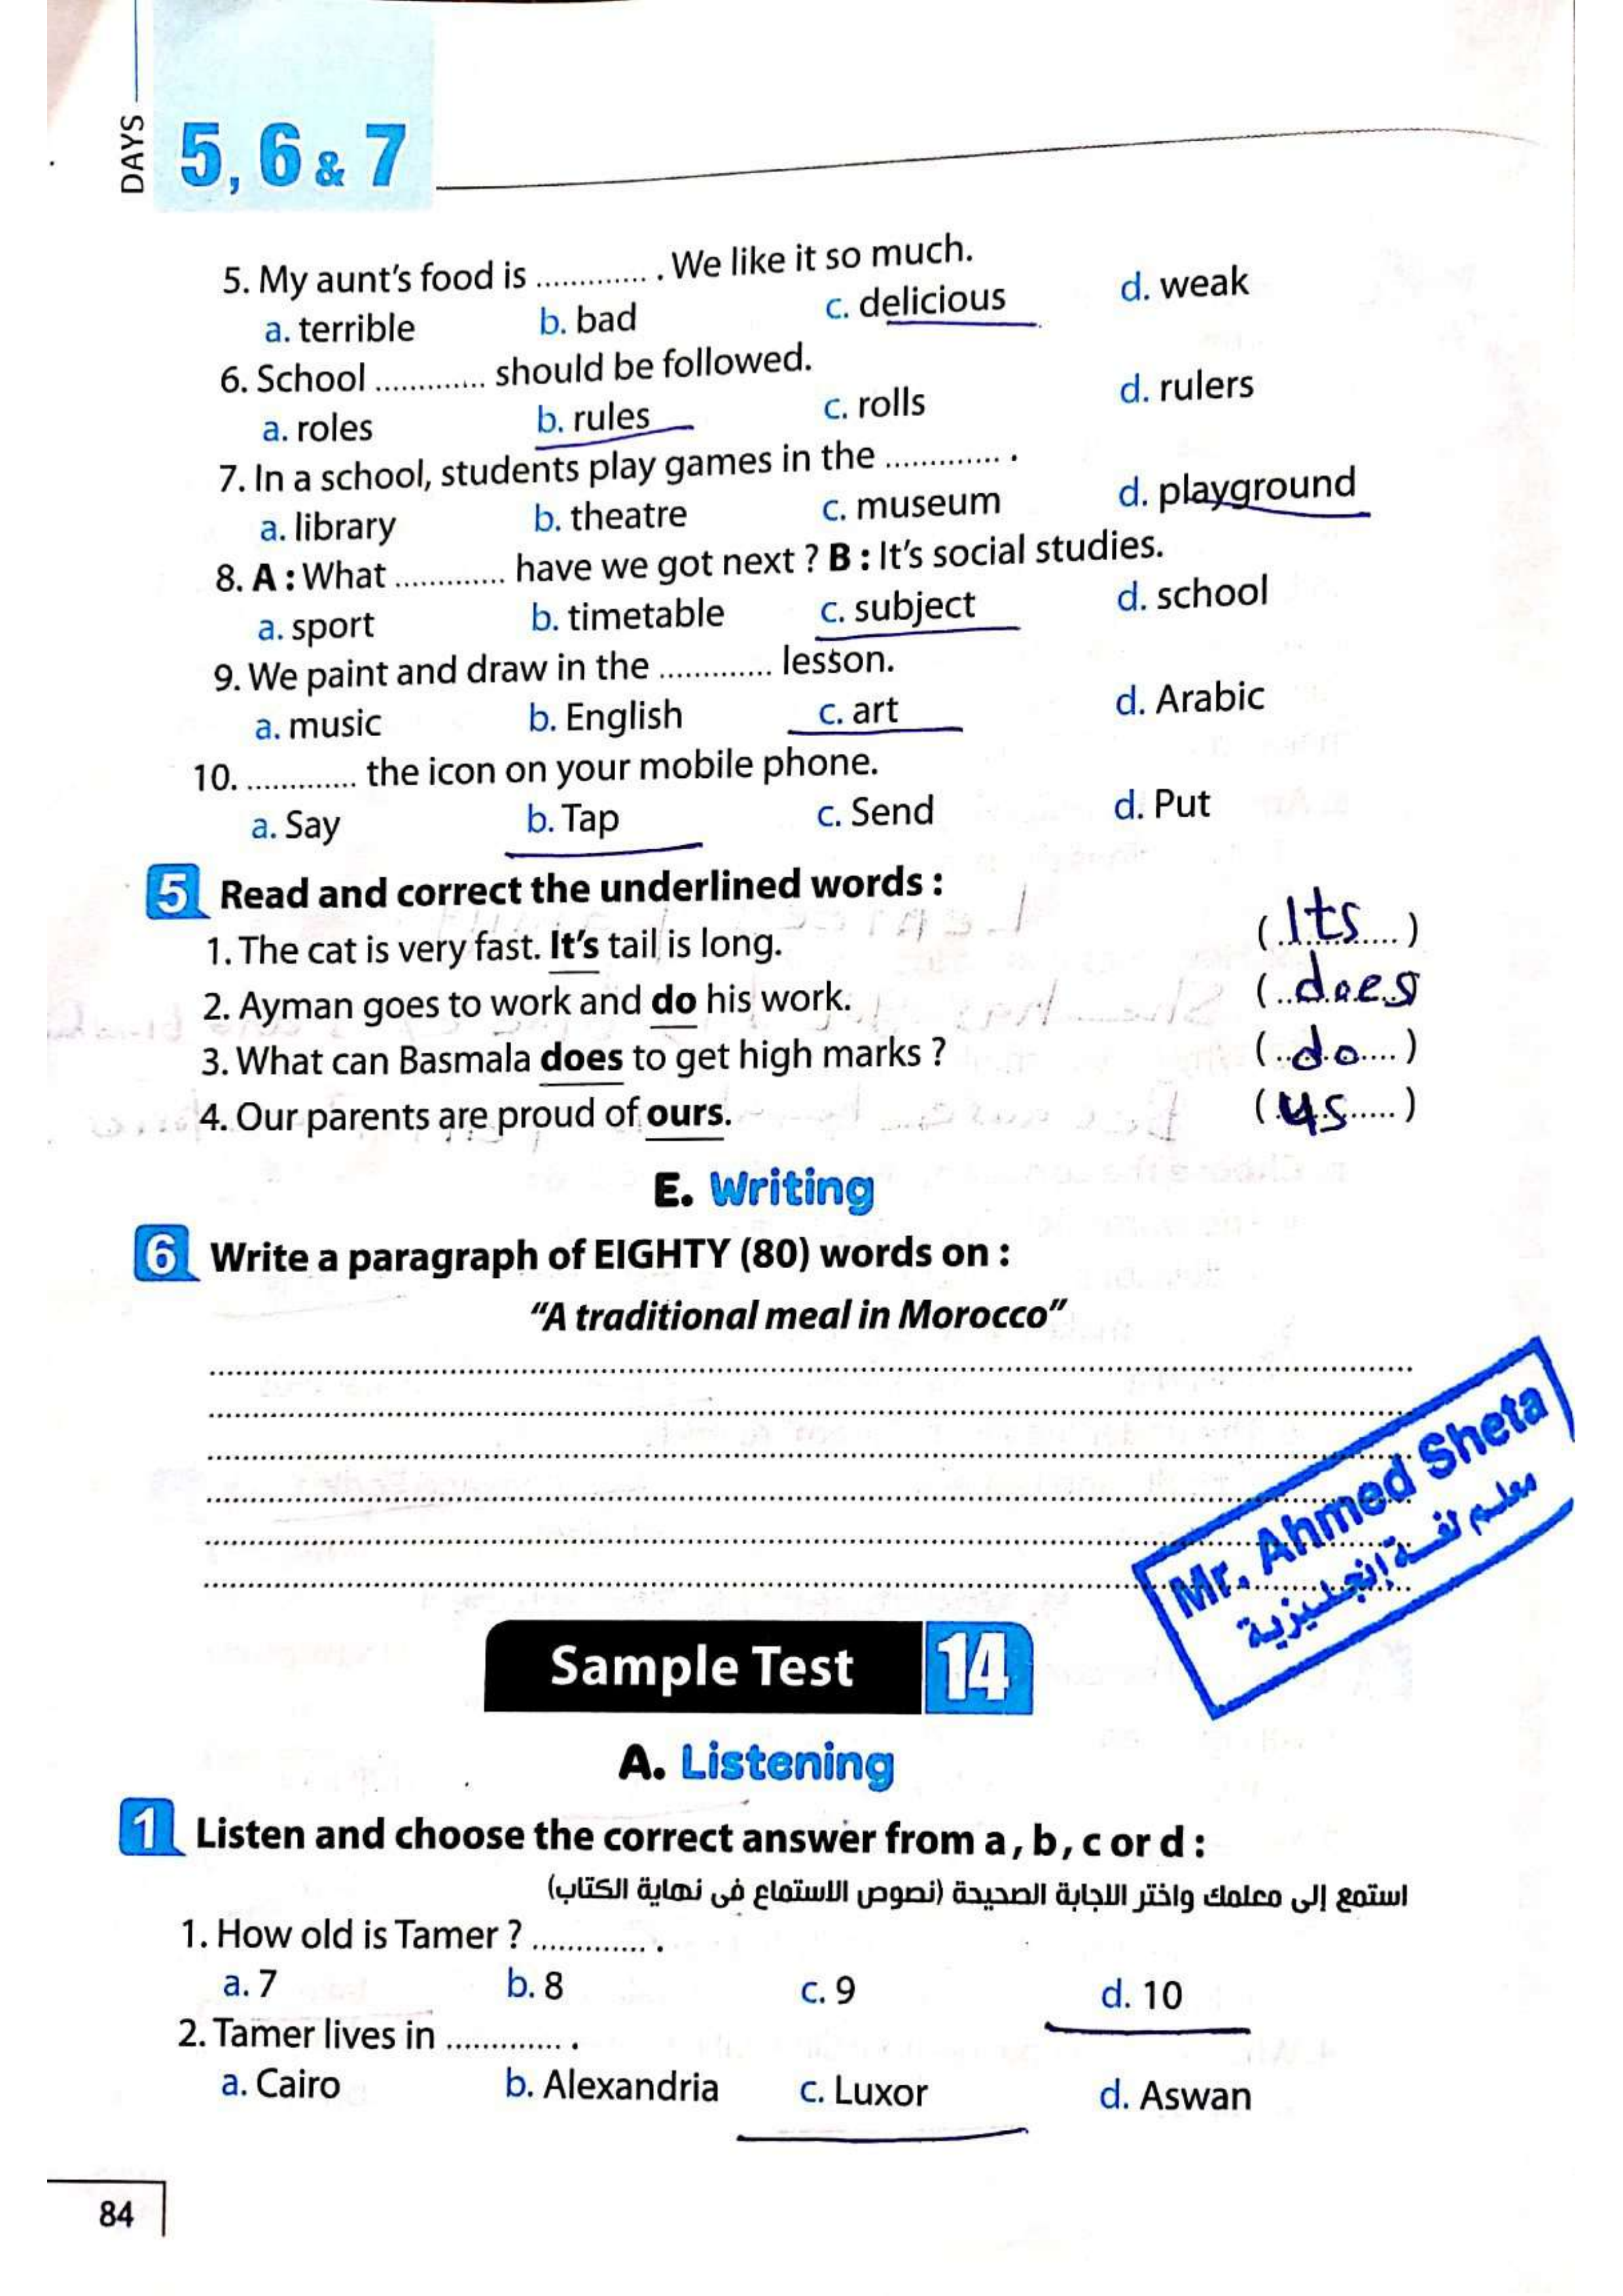 DAYS
5, 6 & 7
5. My aunt's food is ............. . We like it so much.
a. terrible b. bad c. delicious d. weak
6. School ............. should be followed.
a. roles b. rules c. rolls d. rulers
7. In a school, students play games in the ............. .
a. library b. theatre c. museum d. playground
8. A : What ............. have we got next ? B : It's social studies.
a. sport b. timetable c. subject d. school
9. We paint and draw in the ............. lesson.
a. music b. English c. art d. Arabic
10. ............. the icon on your mobile phone.
a. Say b. Tap c. Send d. Put
5 Read and correct the underlined words :
1. The cat is very fast. It's tail is long. (Its)
2. Ayman goes to work and do his work. (does
3. What can Basmala does to get high marks ? (do)
4. Our parents are proud of ours. (us)
E. Writing
6 Write a paragraph of EIGHTY (80) words on :
"A traditional meal in Morocco"
Mr. Ahmed Sheta
معلم لغة إنجليزية
Sample Test 14
A. Listening
1 Listen and choose the correct answer from a , b , c or d :
استمع إلى معلمك واختر الإجابة الصحيحة (نصوص الاستماع فى نهاية الكتاب)
1. How old is Tamer ? ............. .
a. 7 b. 8 c. 9 d. 10
2. Tamer lives in ............. .
a. Cairo b. Alexandria c. Luxor d. Aswan
84